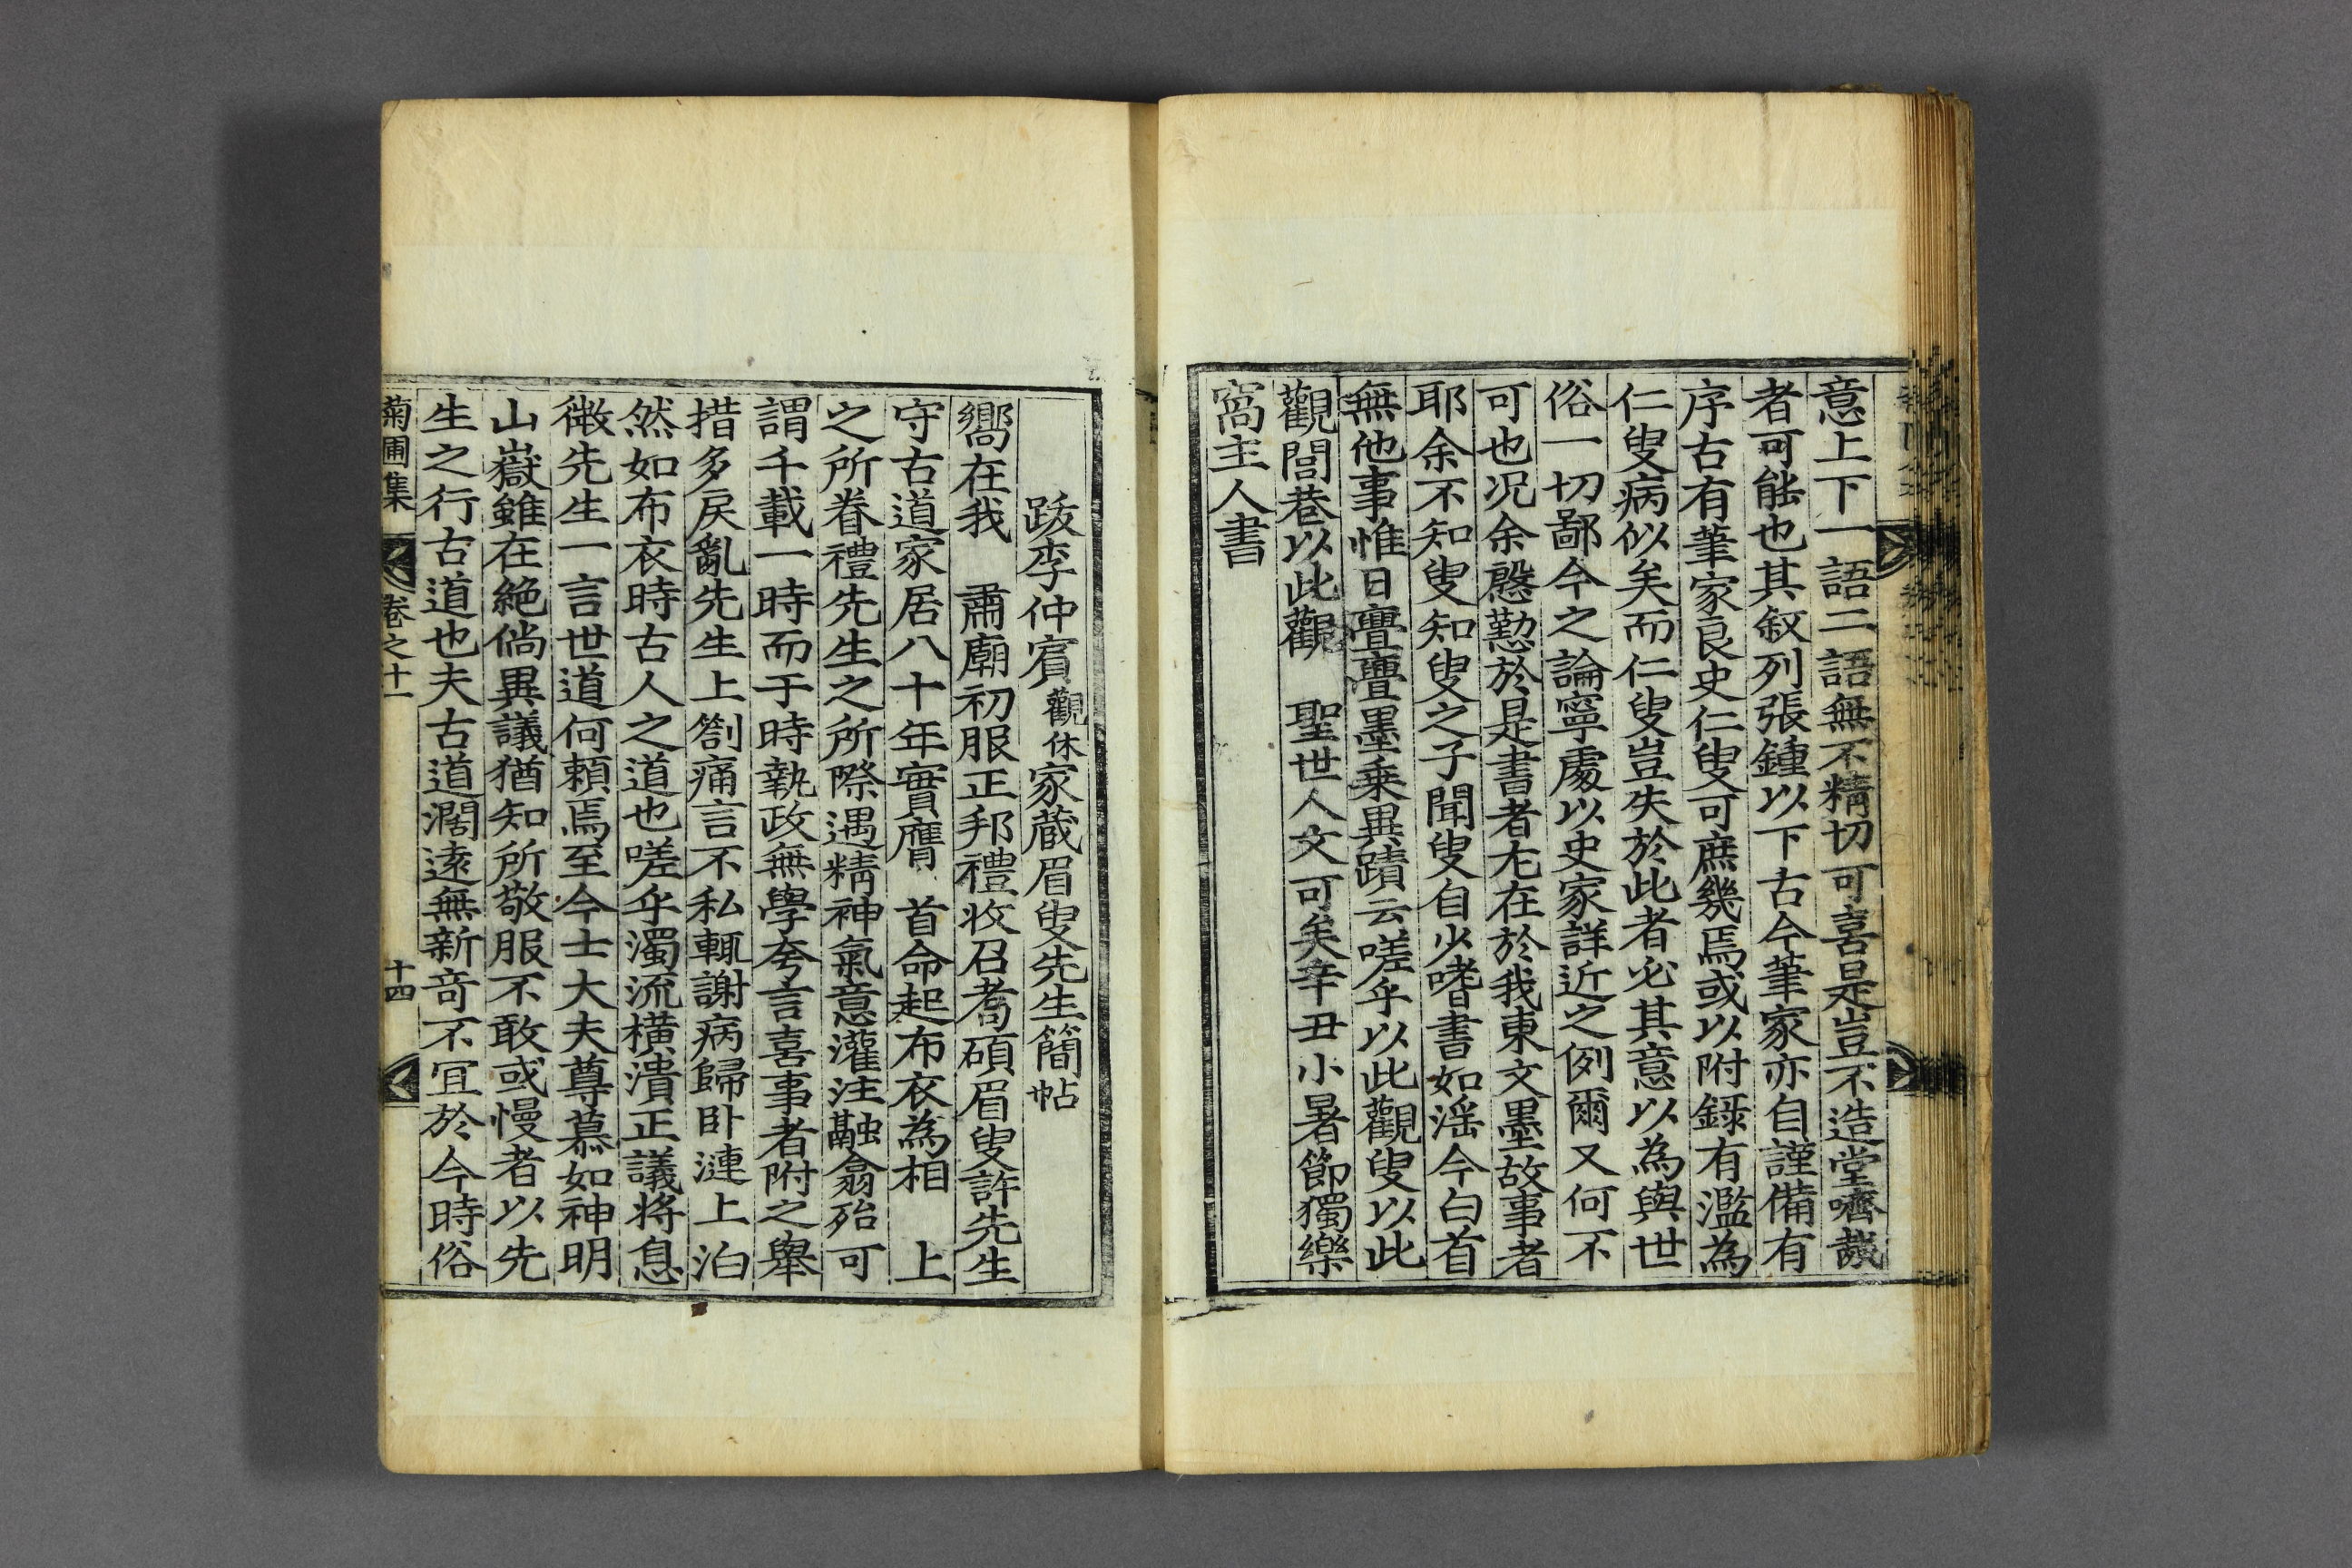 意上下一語二語無不精切可喜是豈不造堂嚌胾
者可能也其叙列張鍾以下古今筆家亦自謹備有
序古有筆家良史仁叟可庶幾焉或以附錄有濫為
仁叟病似矣而仁叟豈失於此者必其意以為與世
俗一切鄙今之論寧處以史家詳近之例爾又何不
可也况余慇懃於是書者尤在於我東文墨故事者
耶余不知叟知叟之子聞叟自少嗜書如滛今白首
無他事惟日亹亹墨乗異蹟云嗟乎以此觀叟以此
觀閭巷以此觀 聖世人文可矣辛丑小暑節獨樂
窩主人書
跋李仲賓觀休家蔵眉叟先生簡帖
嚮在我 肅廟初服正邦禮收召耆碩眉叟許先生
守古道家居八十年實膺 首命起布衣為相 上
之所眷禮先生之所際遇精神氣意灌注融翕殆可
謂千載一時而于時執政無學夸言喜事者附之舉
措多戾亂先生上劄痛言不私輒謝病歸卧漣上泊
然如布衣時古人之道也嗟乎濁流横潰正議将息
微先生一言世道何頼焉至今士大夫尊慕如神明
山嶽雖在絶倘異議猶知所敬服不敢或慢者以先
生之行古道也夫古道濶逺無新竒不冝於今時俗
菊圃集 卷之十一 十四